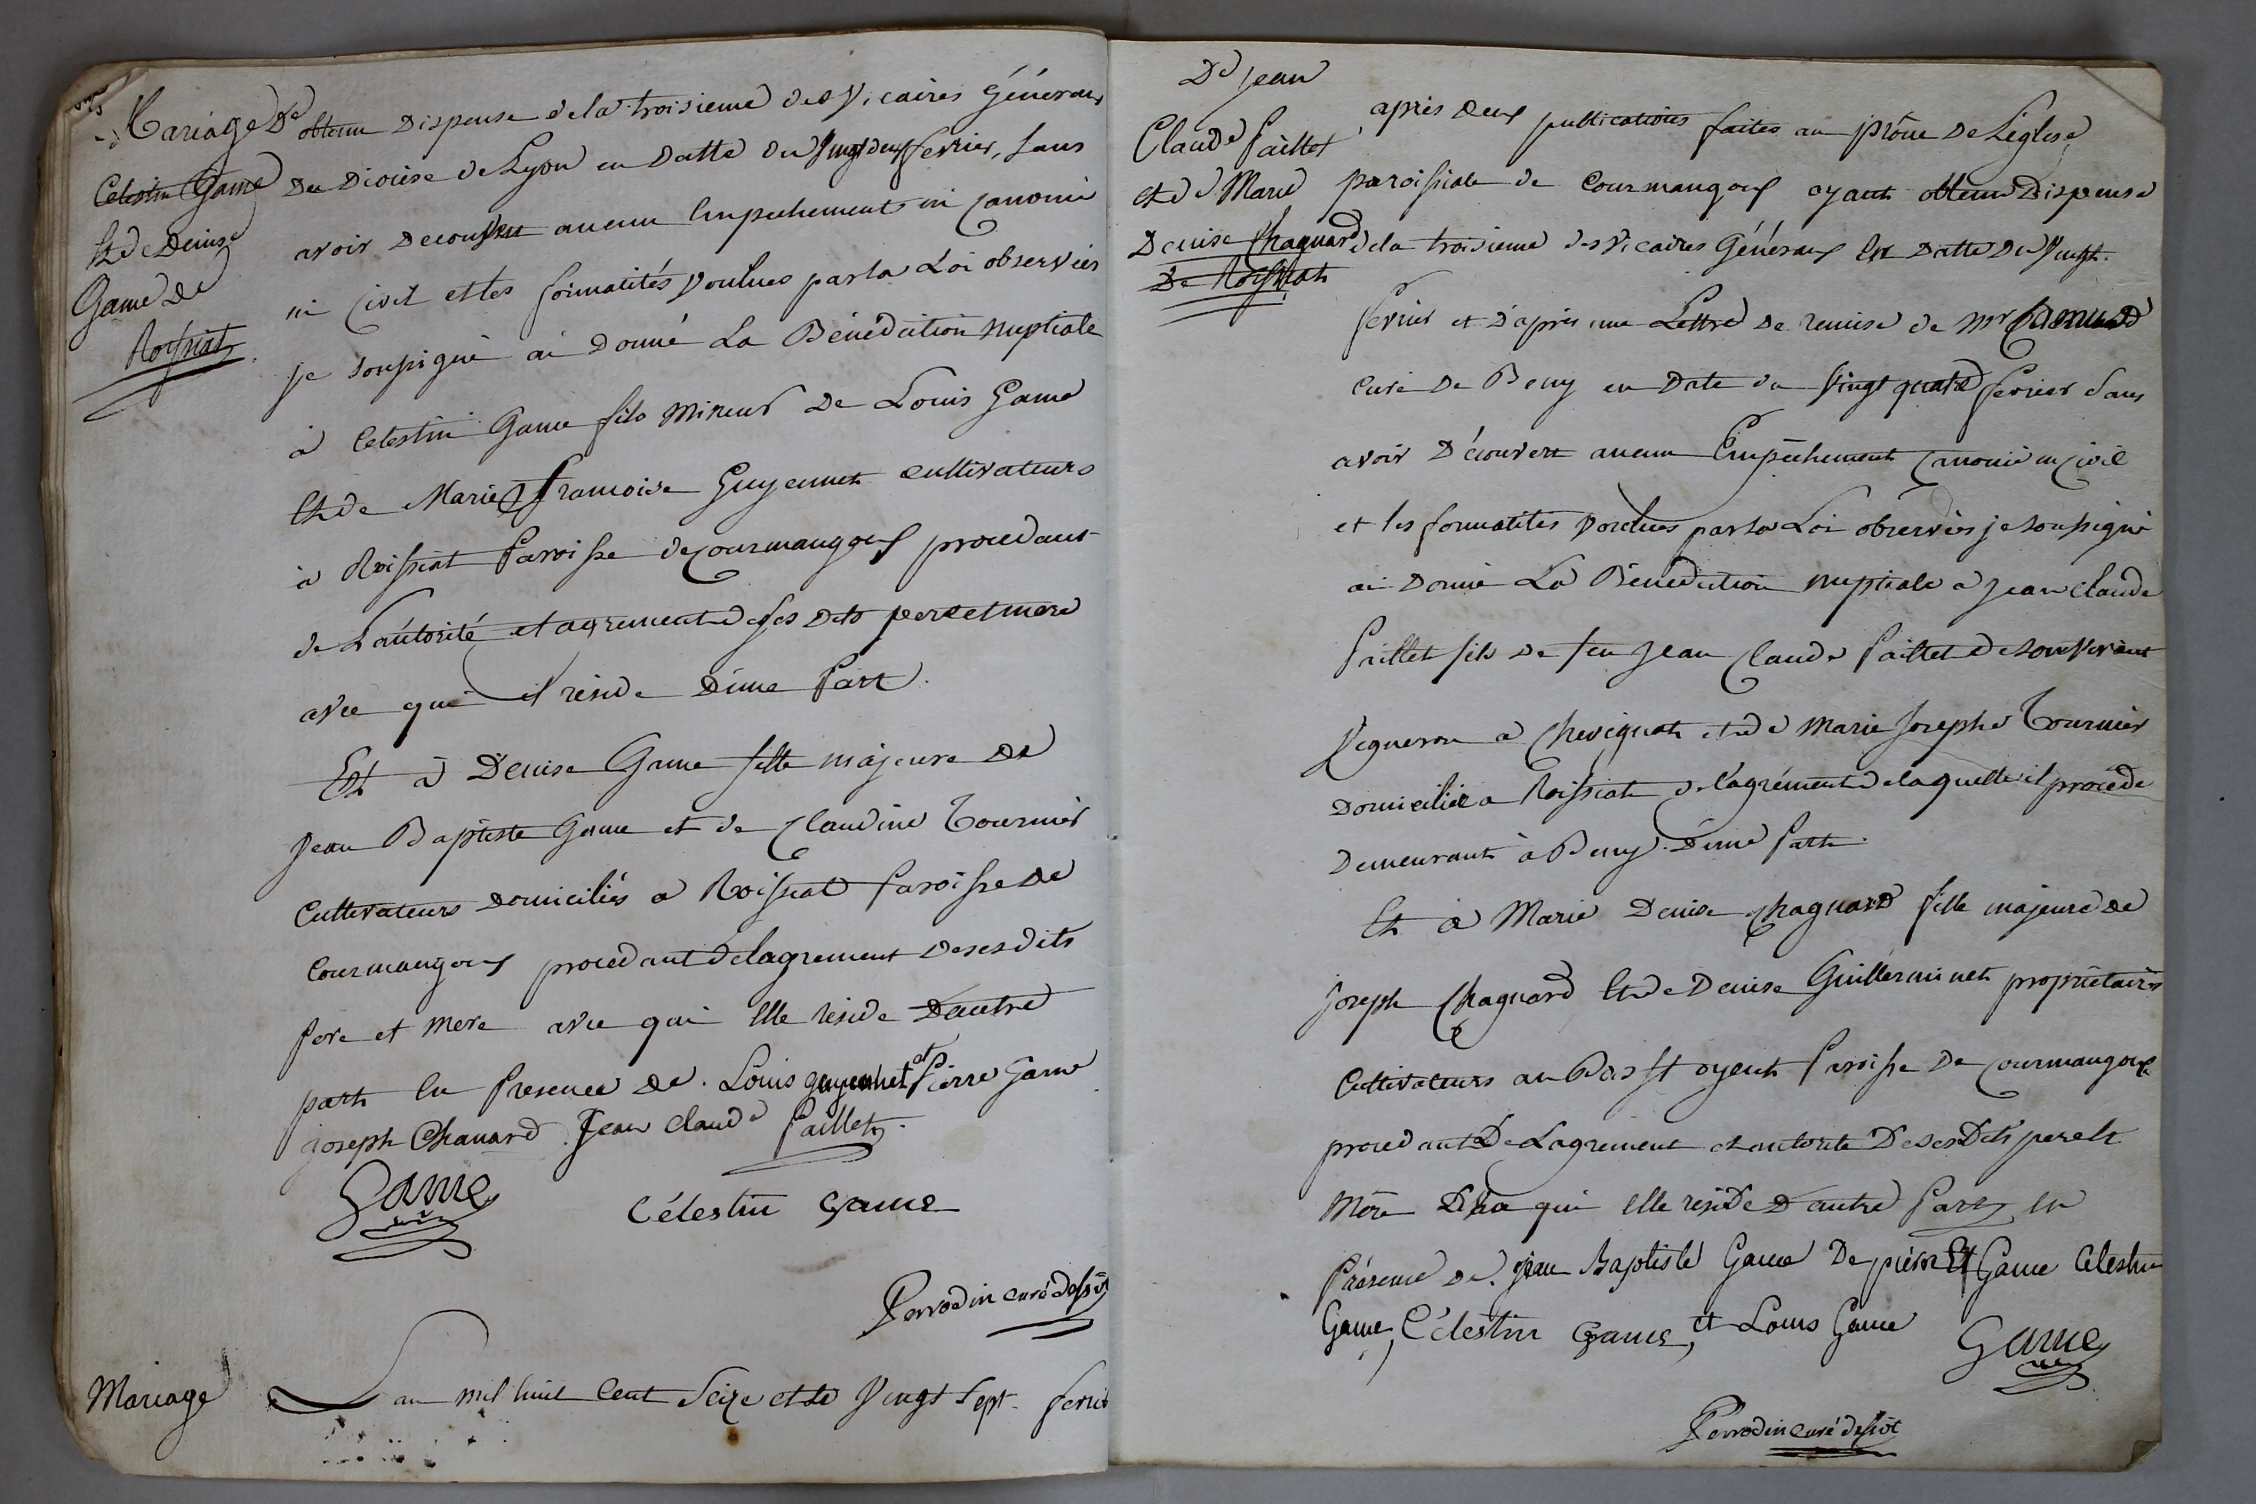 Mariage De
Celestin Game
Et de Denise
Game de
Roissiat
obtenu Dispense de la troisieme des Vicaires Généraux
Du Diocèse de Lyon en Datte du Vingt deux fevrier, sans
avoir Decouvert aucun Empechement ni canoniq
ni Civil et les formalités voulues par la Loi observées
je soussigné ai Donné La Bénédiction Nuptiale
à Celestin Game fils Mineur De Louis Game
Et de Marie françoise Guyennet cultivateurs
à Roissiat Paroisse de Courmangoux procedant
de L'autorité et agrement de ses dits pere et mere
avec qui il réside D'une Part.
Et à Denise Game fille majeure de
Jean Baptiste Game et de Claudine Tournier
Cultivateurs Domiciliés a Roissiat Paroisse de
Courmangoux procedant de lagrement de ses dits
pere et mere avec qui Elle reside D'autre
part En Presence de. Louis guyennet et Pierre Game
joseph Chanard. Jean claude Paillet.
Game
Célestin Game
Perrodin curé dessst
Mariage
L'an mil huit Cent Seize et le Vingt sept fevrier
De Jean
Claude Paillet
et de Marie
Denise Chagnard
De Roissiat
après deux publications faites au prône De L'église
paroissiale de Courmangoux ayant obtenu Dispense
de la troisieme des Vicaires Généraux En Datte Du Vingt.
fevrier et D'après une Lettre de remise de Mr
curé De Beny en Date du Vingt quatre fevrier sans
avoir Découvert aucun Empêchement canoniq ni civil
et les formalités voulues par la Loi observées je soussigné
ai Donné La Bénédiction Nuptiale à Jean Claude
Paillet fils de feu Jean Claude Paillet de son vivant
Vigneron a Chevignat et de Marie Josephe Tournier
Domiciliée a Roissiat de l'agrément de laquelle il procéde
Demeurant à Beny. D'une Part.
Et à Marie Denise Chagnard fille majeure de
Joseph Chagnard Et de Denise Guillerminet propriétaires
Cultivateurs au Bas St oyent Paroisse De Courmangoux
procedant De Lagrement et autorité De ses Dits pere Et
Mère qui Elle reside D'autre Part, en
Présence de. jean Baptiste Game De pierre Et Game Celestin
Game, Célestin Game, et Louis Game
Game
Perrodin curé dessst